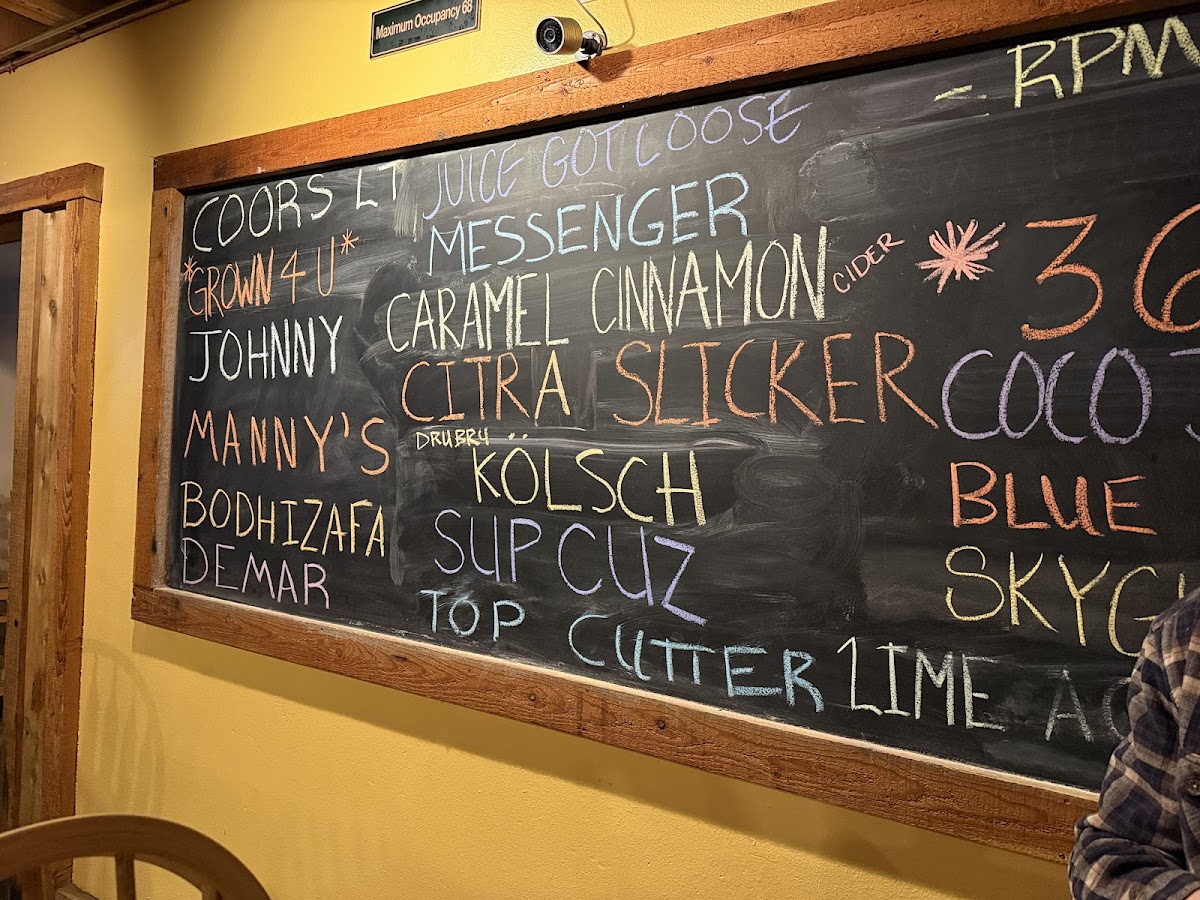 Maximum Occupancy 68
COORS LT
*GROWN 4 U*
JOHNNY
MANNY'S
BODHIZAFA
DEMAR
JUICE GOT LOOSE
MESSENGER
CARAMEL CINNAMON CIDER
CITRA SLICKER
DRUBRU
KÖLSCH
SUPCUZ
TOP CUTTER
LIME
RPM
* 36
COCO J
BLUE
SKYG